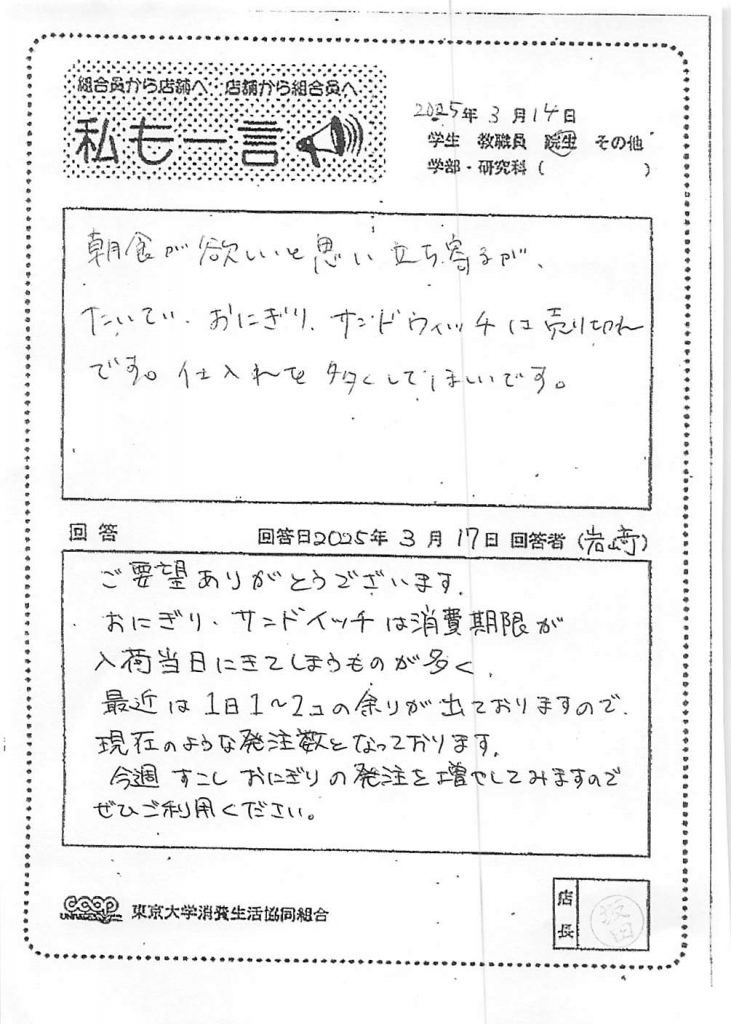 組合員から店舗へ 店舗から組合員へ
私も一言
2025年 3月14日
学生 教職員 院生 その他
学部・研究科 ( )
朝食が欲しいと思い立ち寄るが、
たいてい、おにぎり、サンドウィッチは売り切れ
です。仕入れを多くしてほしいです。
回答 回答日2025年 3月 17日 回答者 (岩崎)
ご要望ありがとうございます。
おにぎり、サンドイッチは消費期限が
入荷当日にきてしまうものが多く、
最近は1日1~2コの余りが出ておりますので、
現在のような発注数となっております。
今週 すこし おにぎりの発注を増やしてみますので
ぜひご利用ください。
coop
東京大学消費生活協同組合
店長